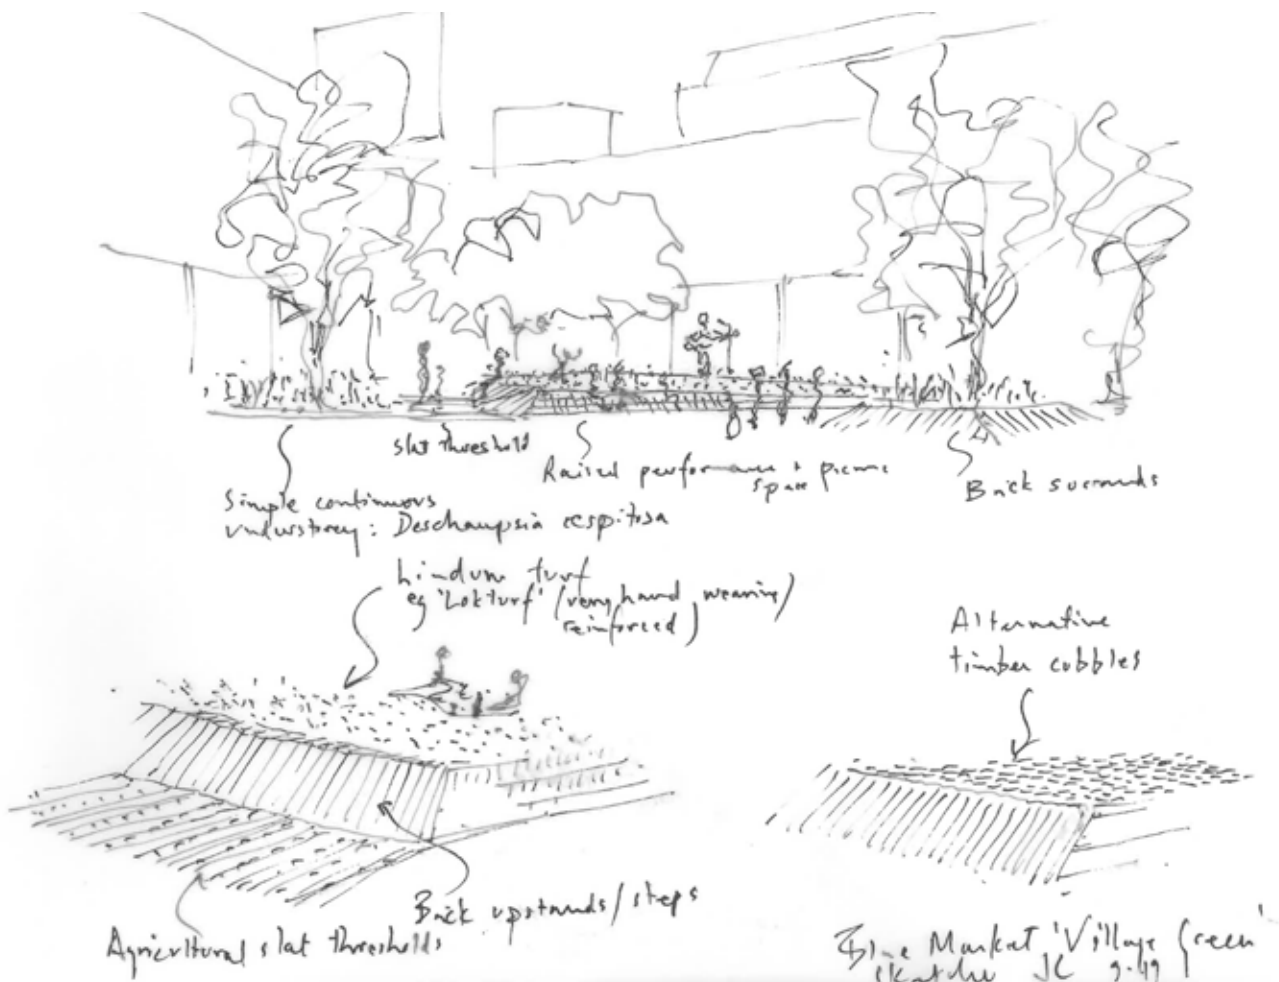 slat threshold
Raised performance + picnic
space
Brick surrounds
Simple continuous
understorey: Deschampsia cespitosa
Lindum turf
eg 'Lokturf' (very hard wearing/
reinforced)
Alternative
timber cobbles
Brick upstands/steps
Agricultural slat thresholds
Blue Market 'Village Green'
Sketches JC 9.19